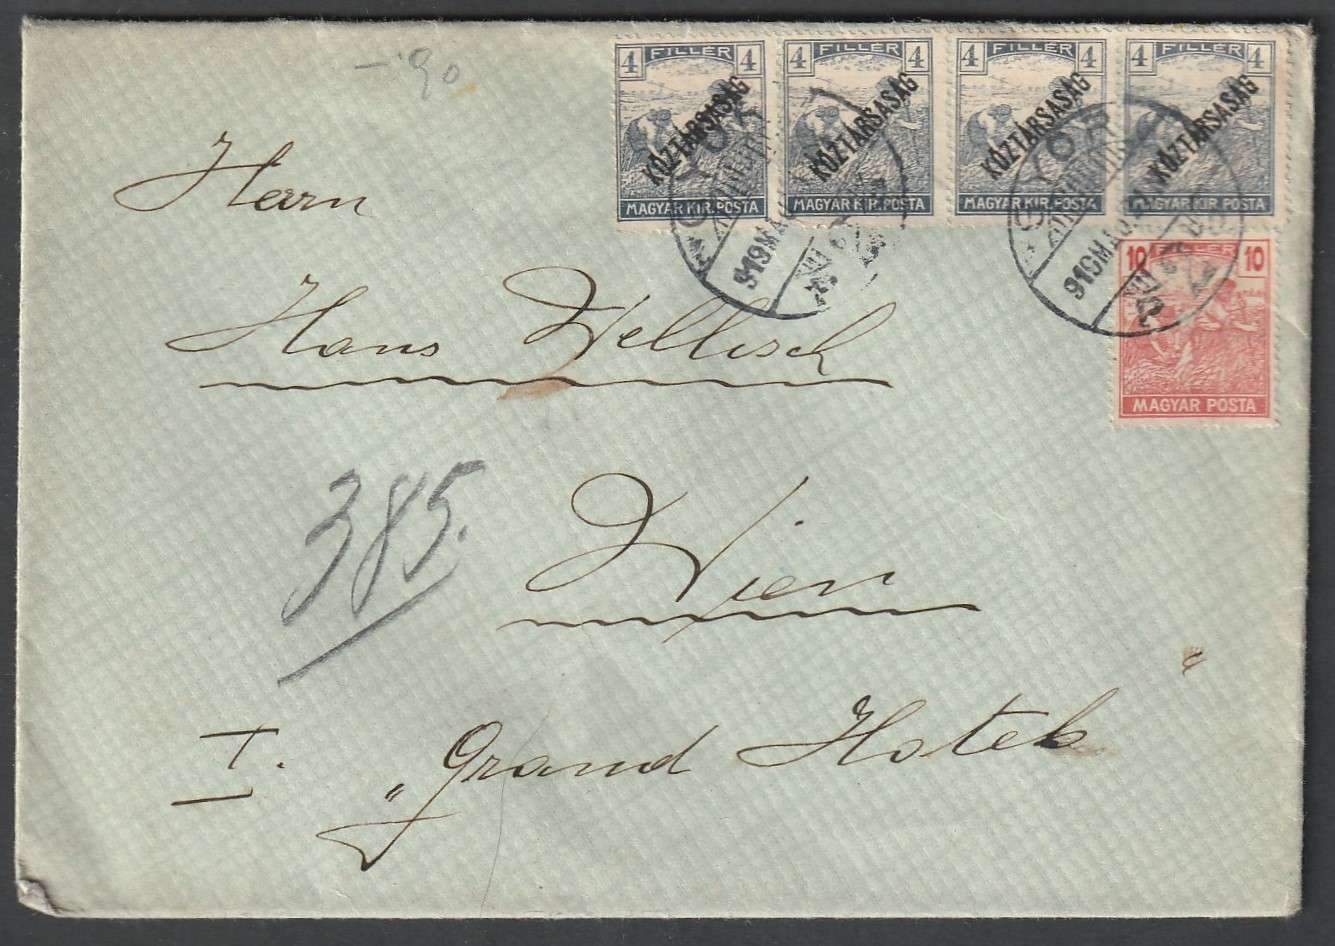 -'90
4 FILLÉR 4
KÖZTÁRSASÁG
MAGYAR KIR. POSTA
4 FILLÉR 4
KÖZTÁRSASÁG
MAGYAR KIR. POSTA
4 FILLÉR 4
KÖZTÁRSASÁG
MAGYAR KIR. POSTA
4 FILLÉR 4
KÖZTÁRSASÁG
MAGYAR KIR. POSTA
10 FILLÉR 10
MAGYAR POSTA
919 MÁJ
919 MÁJ
Herrn
Hans Wellisch
385.
Wien
I. „Grand Hotel“